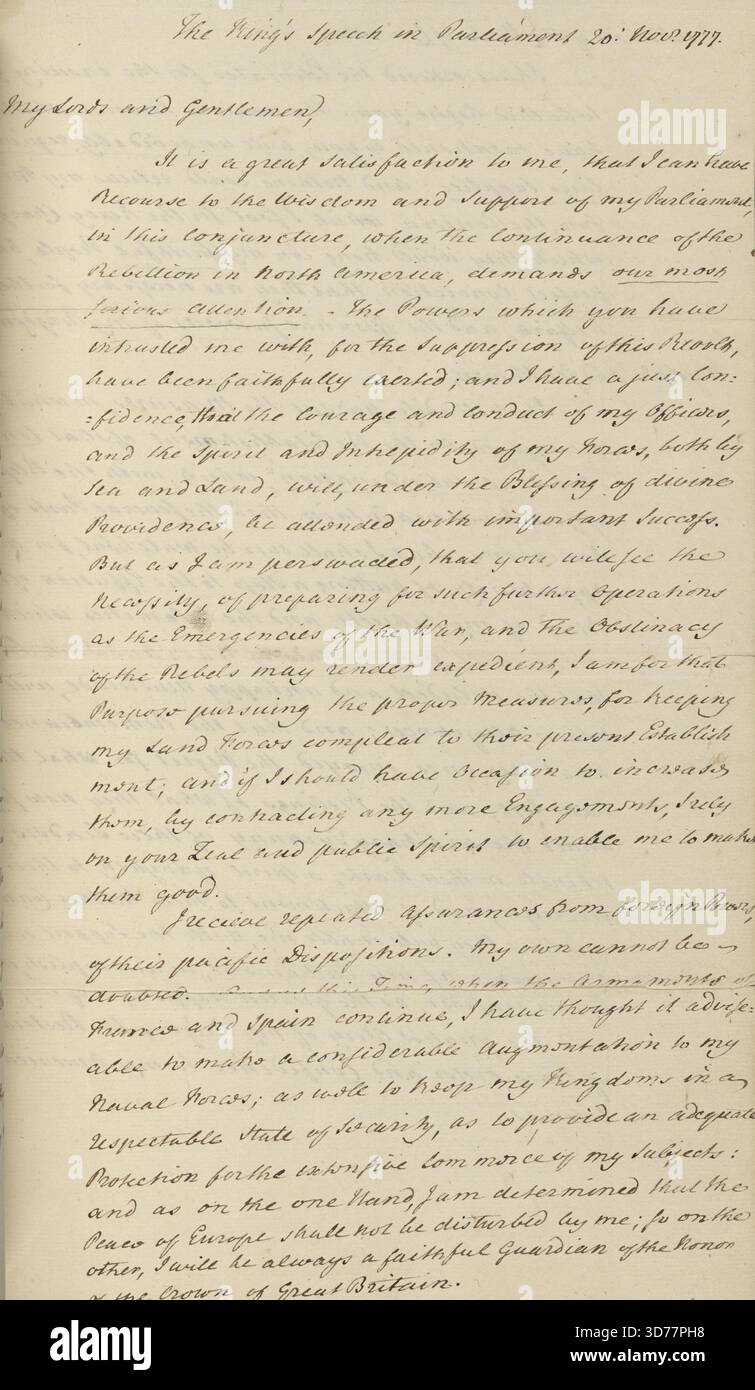 The King's Speech in Parliament 20: Nov.r 1777.
My Lords and Gentlemen,
It is a great satisfaction to me, that I can have
Recourse to the Wisdom and Support of my Parliament,
in this Conjuncture, when the Continuance of the
Rebellion in North America, demands our most
serious attention. - The Powers which you have
intrusted me with, for the Suppression of this Revolt,
have been faithfully exerted; and I have a just Con:
:fidence, that the Courage and Conduct of my Officers,
and the Spirit and Intrepidity of my Forces, both by
Sea and Land, will, under the Blessing of divine
Providence, be attended with important Success.
But as I am perswaded, that you will see the
Necessity, of preparing for such further Operations
as the Emergencies of the War, and the Obstinacy
of the Rebels may render expedient, I am for that
Purpose pursuing the proper Measures, for keeping
my Land Forces compleat to their present Establish
ment; and if I should have Occasion to increase
them, by contracting any more Engagements, I rely
on your Zeal and public Spirit to enable me to make
them good.
I recieve repeated Assurances from foreign Powers,
of their pacific Dispositions. My own cannot be
doubted. this Time, when the Armaments of
France and Spain continue, I have thought it advise-
able to make a considerable Augmentation to my
Naval Forces; as well to keep my Kingdoms in a
respectable State of Security, as to provide an adequate
Protection for the extensive Commerce of my Subjects:
and as on the one Hand, I am determined that the
Peace of Europe shall not be disturbed by me; so on the
other, I will be always a faithful Guardian of the Honor
of the Crown of Great Britain.
alamy
alamy
alamy
alamy
Image ID: 3D77PH8
www.alamy.com